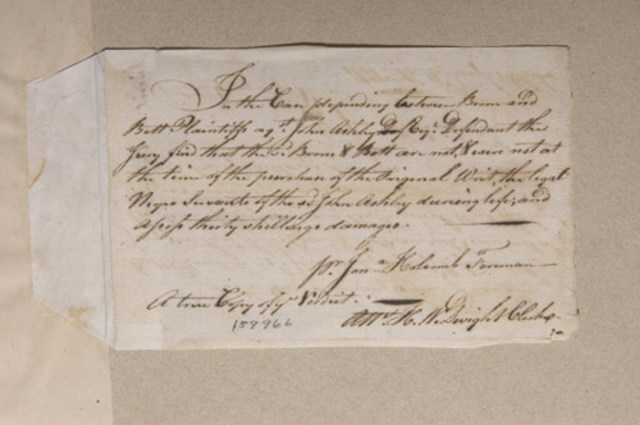 In the Case depending between Brom and
Bett Plaintiffs agt. John Ashby Esqr. Defendant the
Jury find that the sd. Brom & Bett are not, & were not at
the time of the purchase of the Original Writ, the legal
Negro Servants of the sd John Ashby during life; and
Assess thirty shillings damages.
pr. Jona. Holcomb Foreman
A true Copy of ye. Verdict.
Attr. H. W. Dwight Clerk
159966